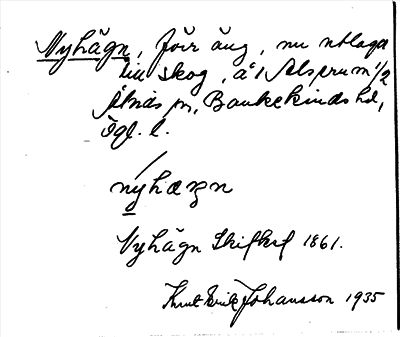 Nyhägn, förr äng, nu utlaga
till skog, å 1 Alsrum 1/2
Åtvids sn, Bankekinds hd,
Ögl. l.
nyhæŋn
Nyhägn Skifteskf 1861.
Knut Erik Johansson 1935